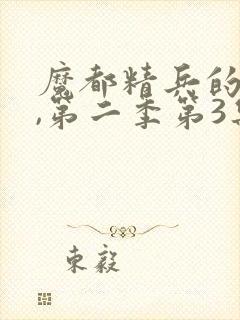 魔都精兵的
,第二季第3
東毅